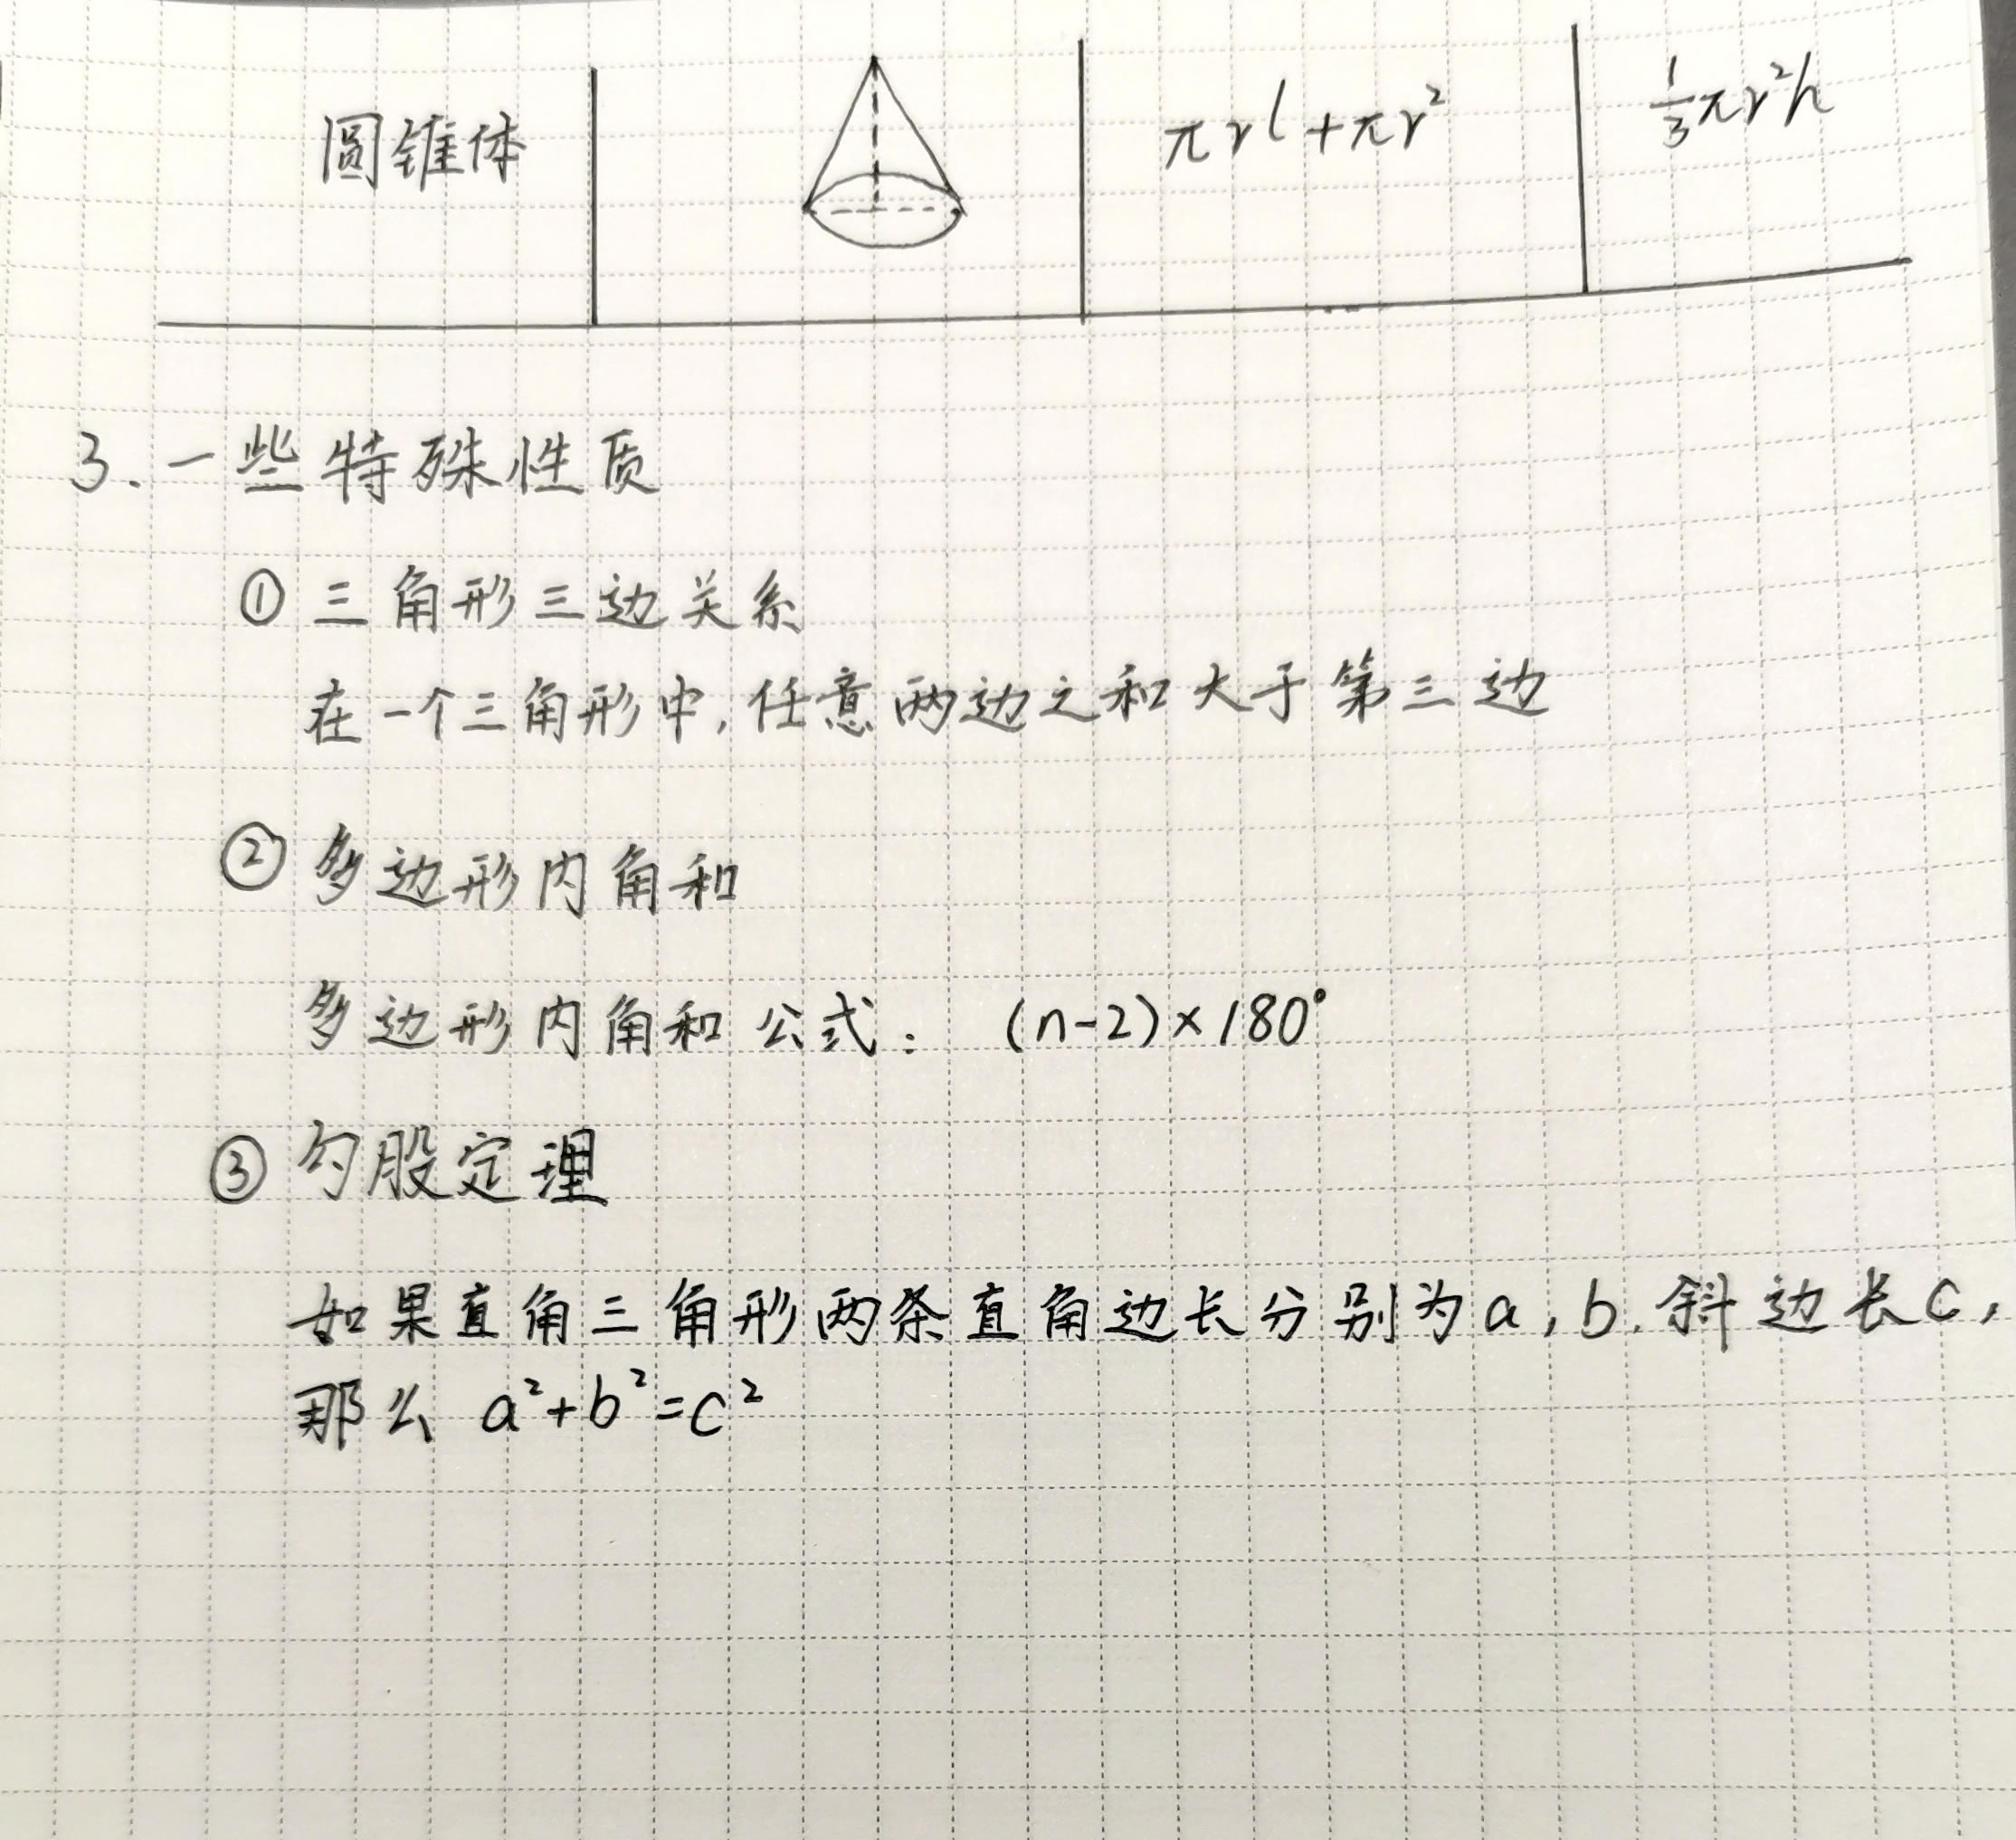 圆锥体 πrl+πr² ⅓πr²h
3. 一些特殊性质
① 三角形三边关系
在一个三角形中, 任意两边之和大于第三边
② 多边形内角和
多边形内角和公式: (n-2)×180°
③ 勾股定理
如果直角三角形两条直角边长分别为a, b. 斜边长c,
那么 a²+b²=c²